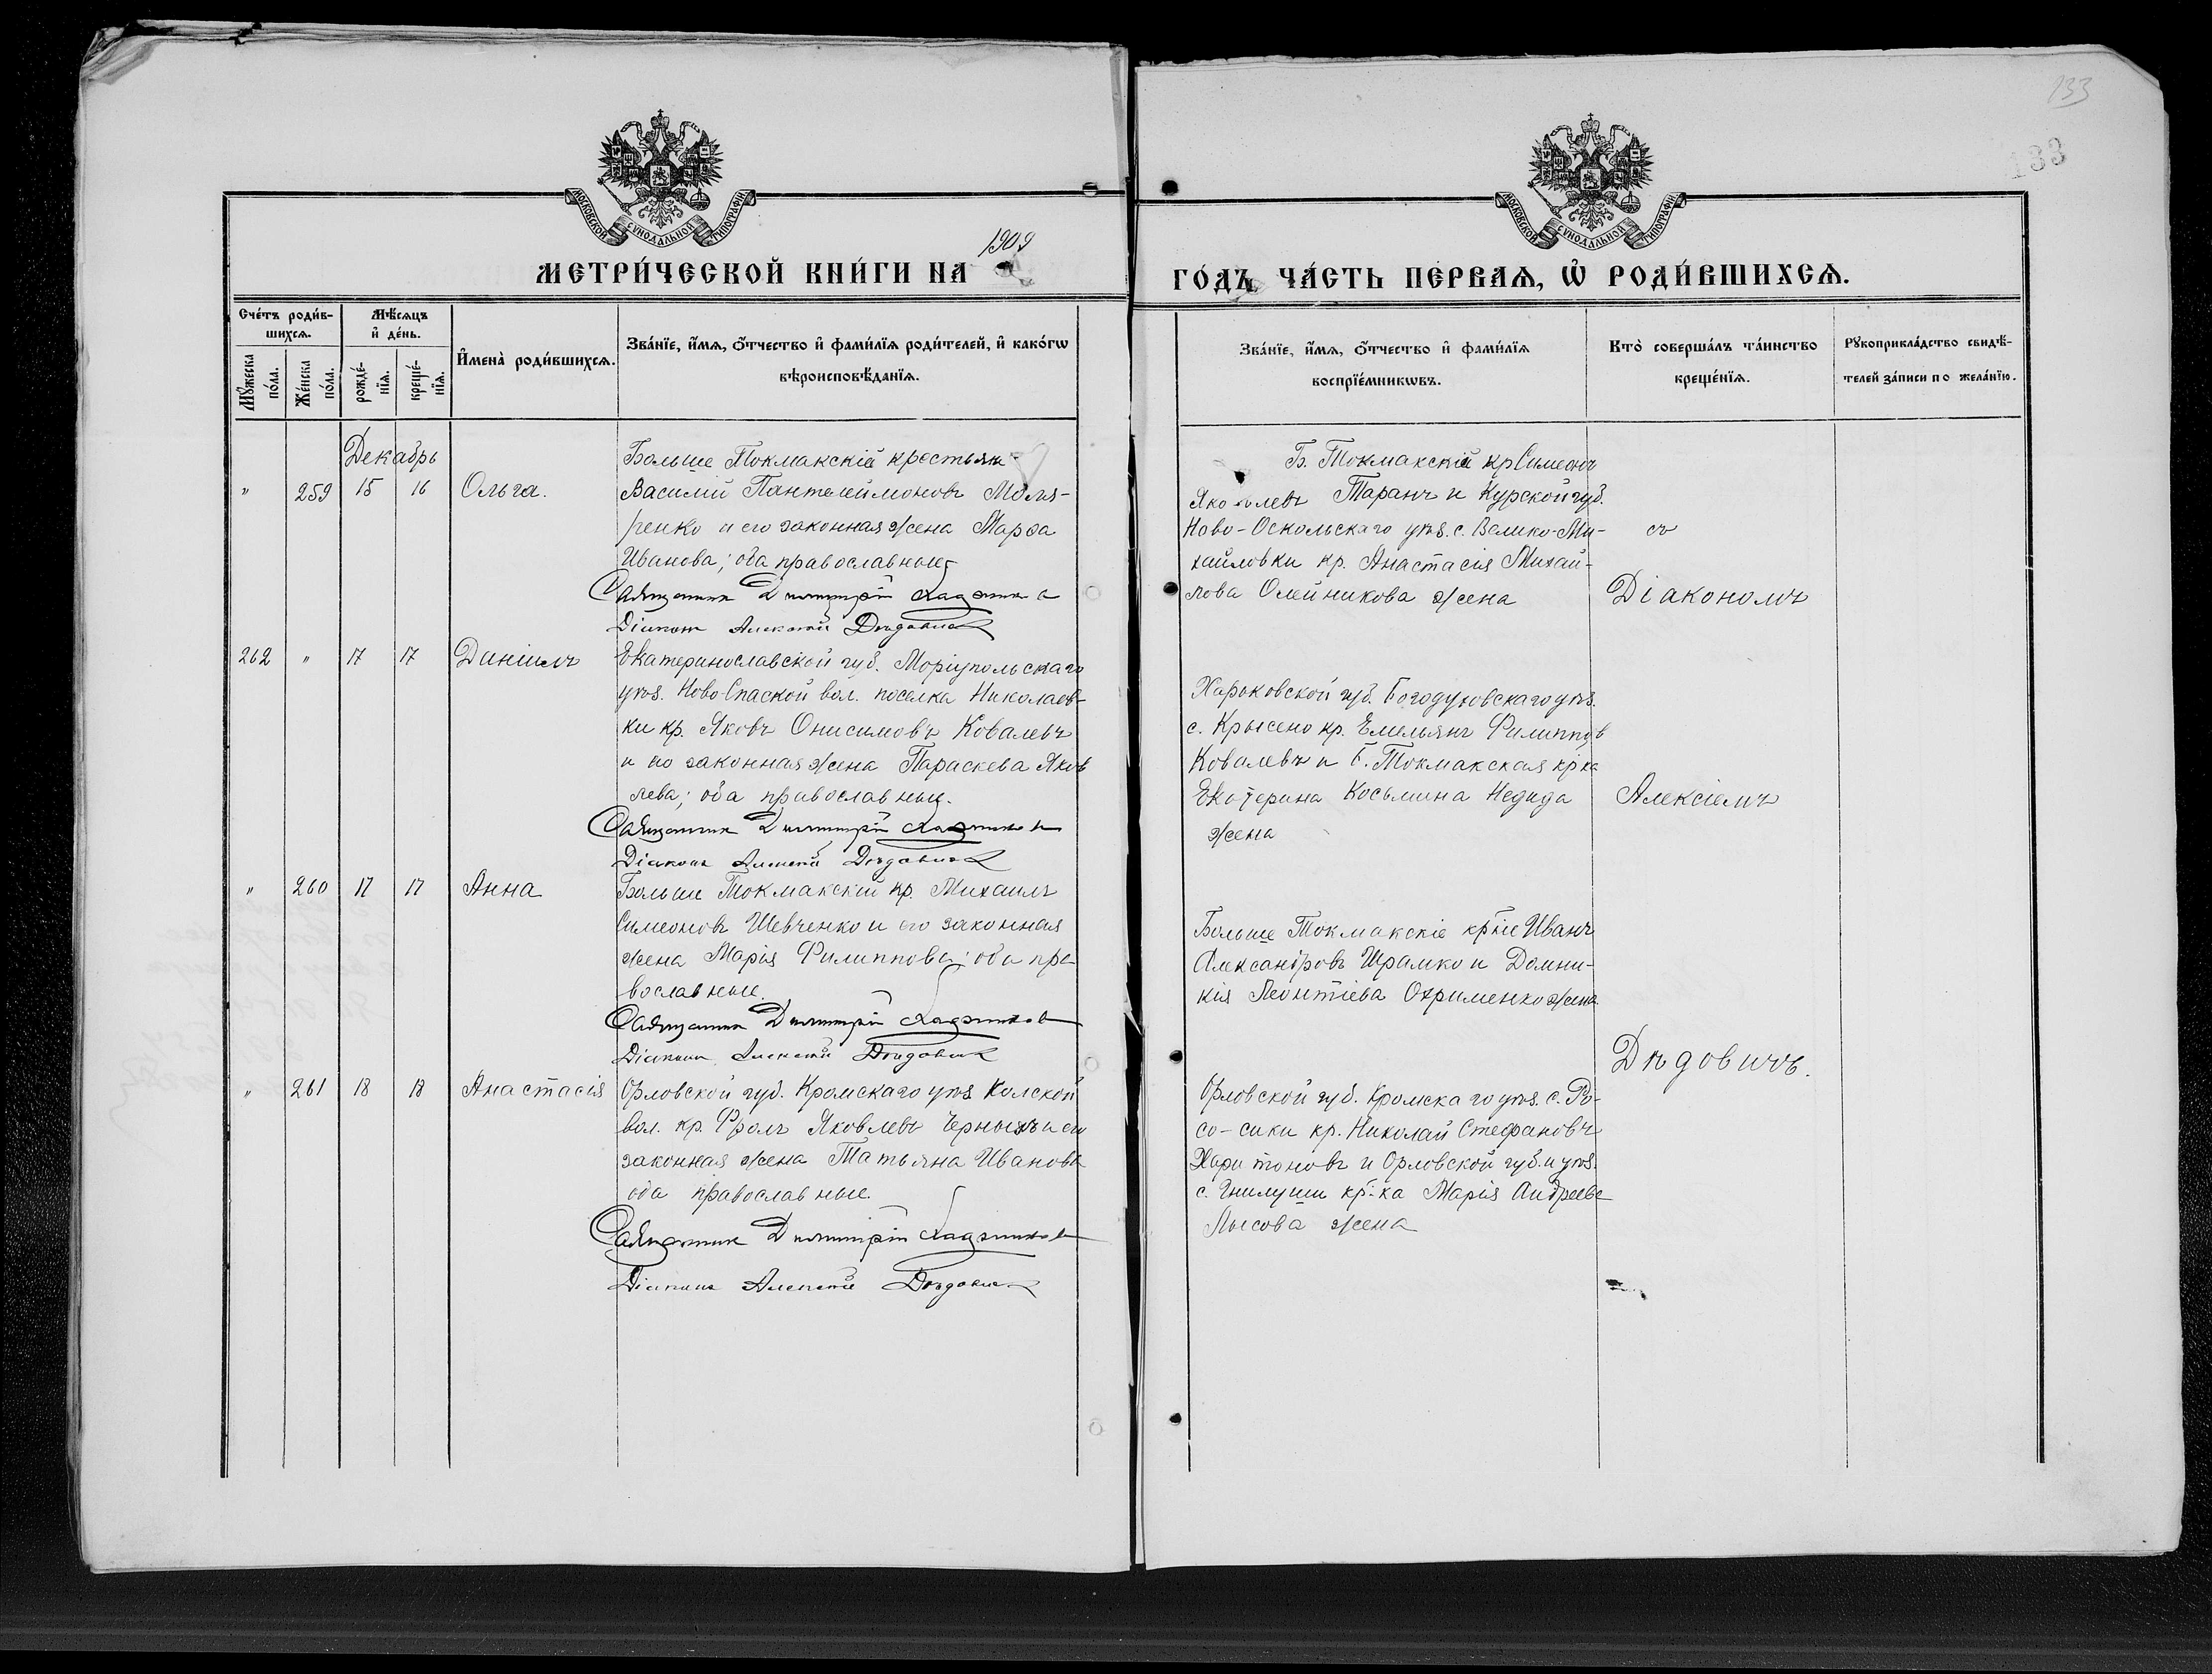 133
133
МОСКОВСКОЙ СѴНОДАЛЬНОЙ ТИПОГРАФІИ
МОСКОВСКОЙ СѴНОДАЛЬНОЙ ТИПОГРАФІИ
МЕТРИ́ЧЕСКОЙ КНИ́ГИ НА 1909
ГО́ДЪ ЧА́СТЬ ПЕ́РВАѦ, Ѽ РОДИ́ВШИХСѦ.
Сче́тъ роди́в-
шихсѧ.
Мꙋ́жеска
по́ла.
Же́нска
по́ла.
Мѣ́сѧцъ
и҆ де́нь.
рожде́-
нїѧ.
креще́-
нїѧ.
И҆мена̀ роди́вшихсѧ.
Зва́нїе, и҆́мѧ, ѻ҆́тчество и҆ фами́лїѧ роди́телей, и҆ како́гѡ
вѣроисповѣ́данїѧ.
Зва́нїе, и҆́мѧ, ѻ҆́тчество и҆ фами́лїѧ
воспрїе́мникѡвъ.
Кто̀ соверша́лъ та́инство
креще́нїѧ.
Рꙋкоприкла́дство свидѣ́-
телей за́писи по жела́нїю.
Декабрь
" 259 15 16 Ольга.
Больше Токмакскій крестьян-
Василій Пантелеймоновъ Моля-
ренко и его законная жена Марѳа
Иванова; оба православные
Священник Димитрій
Діакон Алексѣй Дѣдович
Б. Токмакскій кр Симеонъ
Яковлевъ Таранъ и Курской губ.
Ново-Оскольскаго уѣз. с. Велико-Ми-
хайловки кр. Анастасія Михай-
лова Олейникова жена
съ
Діакономъ
262 " 17 17 Даніилъ
Екатеринославской губ. Моріупольскаго
уѣз. Ново Спаской вол. поселка Николаев-
ки кр. Яковъ Онисимовъ Ковалевъ
и его законная жена Параскева Яков
лева; оба православные.
Священник Димитрій
Діаконъ Алексѣй Дѣдович
Харьковской губ. Богодуховскаго уѣз.
с. Крысено кр. Емельянъ Филиппов
Ковалевъ и Б. Токмакская кр ка
Екатерина Косьмина Недида
жена
Алексіемъ
" 260 17 17 Анна
Больше Токмакскій кр. Михаилъ
Симеоновъ Шевченко и его законная
жена Марія Филиппова; оба пра-
вославные.
Священник Димитрій
Діакон Алексѣй Дѣдович
Больше Токмакскіе кр не Иванъ
Александровъ Шрамко и Домни-
кія Леонтіева Охрименко жена.
Дѣдовичъ.
" 261 18 18 Анастасія
Орловской губ. Кромскаго уѣз Колской
вол. кр. Фролъ Яковлевъ Черныхъ и его
законная жена Татьяна Иванова
оба православные.
Священник Димитрій
Діаконъ Алексѣй Дѣдович
Орловской губ. Кромскаго уѣз. с. Ро-
со-сики кр. Николай Стефановъ
Харитоновъ и Орловской губ. и уѣз.
с. Гнилуши кр-ка Марія Андреева
Лысова жена